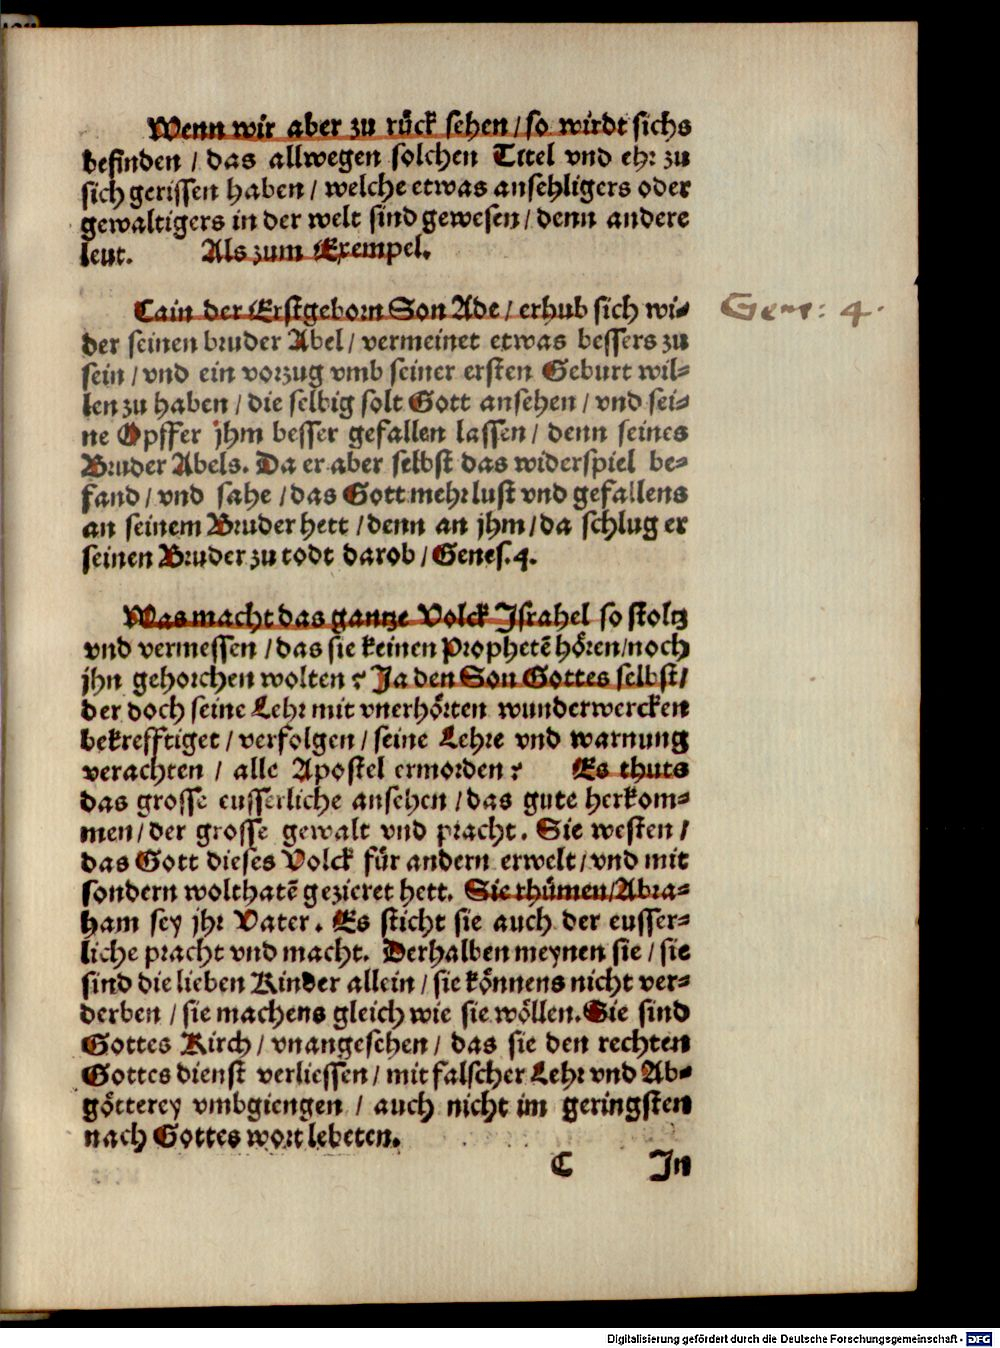 Wenn wir aber zu rück sehen / so wirdt sichs
befinden / das allwegen solchen Titel vnd ehr zu
sich gerissen haben / welche etwas ansehligers oder
gewaltigers in der welt sind gewesen / denn andere
leut. Als zum Exempel.
Cain der Erstgeborn Son Ade / erhub sich wi-
Gene: 4.
der seinen bruder Abel / vermeinet etwas bessers zu
sein / vnd ein vorzug vmb seiner ersten Geburt wil-
len zu haben / die selbig solt Gott ansehen / vnd sei-
ne Opffer jhm besser gefallen lassen / denn seines
Bruder Abels. Da er aber selbst das widerspiel be-
fand / vnd sahe / das Gott mehr lust vnd gefallens
an seinem Bruder hett / denn an jhm / da schlug er
seinen Bruder zu todt darob / Genes. 4.
Was macht das gantze Volck Israhel so stoltz
vnd vermessen / das sie keinen Prophetē hören / noch
jhn gehorchen wolten? Ja den Son Gottes selbst /
der doch seine Lehr mit vnerhörten wunderwercken
bekrefftiget / verfolgen / seine Lehre vnd warnung
verachten / alle Apostel ermorden? Es thuts
das grosse eusserliche ansehen / das gute herkom-
men / der grosse gewalt vnd pracht. Sie westen /
das Gott dieses Volck für andern erwelt / vnd mit
sondern wolthatē gezieret hett. Sie rhümen / Abra-
ham sey jhr Vater. Es sticht sie auch der eusser-
liche pracht vnd macht. Derhalben meynen sie / sie
sind die lieben Kinder allein / sie könnens nicht ver-
derben / sie machens gleich wie sie wöllen. Sie sind
Gottes Kirch / vnangesehen / das sie den rechten
Gottes dienst verliessen / mit falscher Lehr vnd Ab-
götterey vmbgiengen / auch nicht im geringsten
nach Gottes wort lebeten.
C In
Digitalisierung gefördert durch die Deutsche Forschungsgemeinschaft - DFG